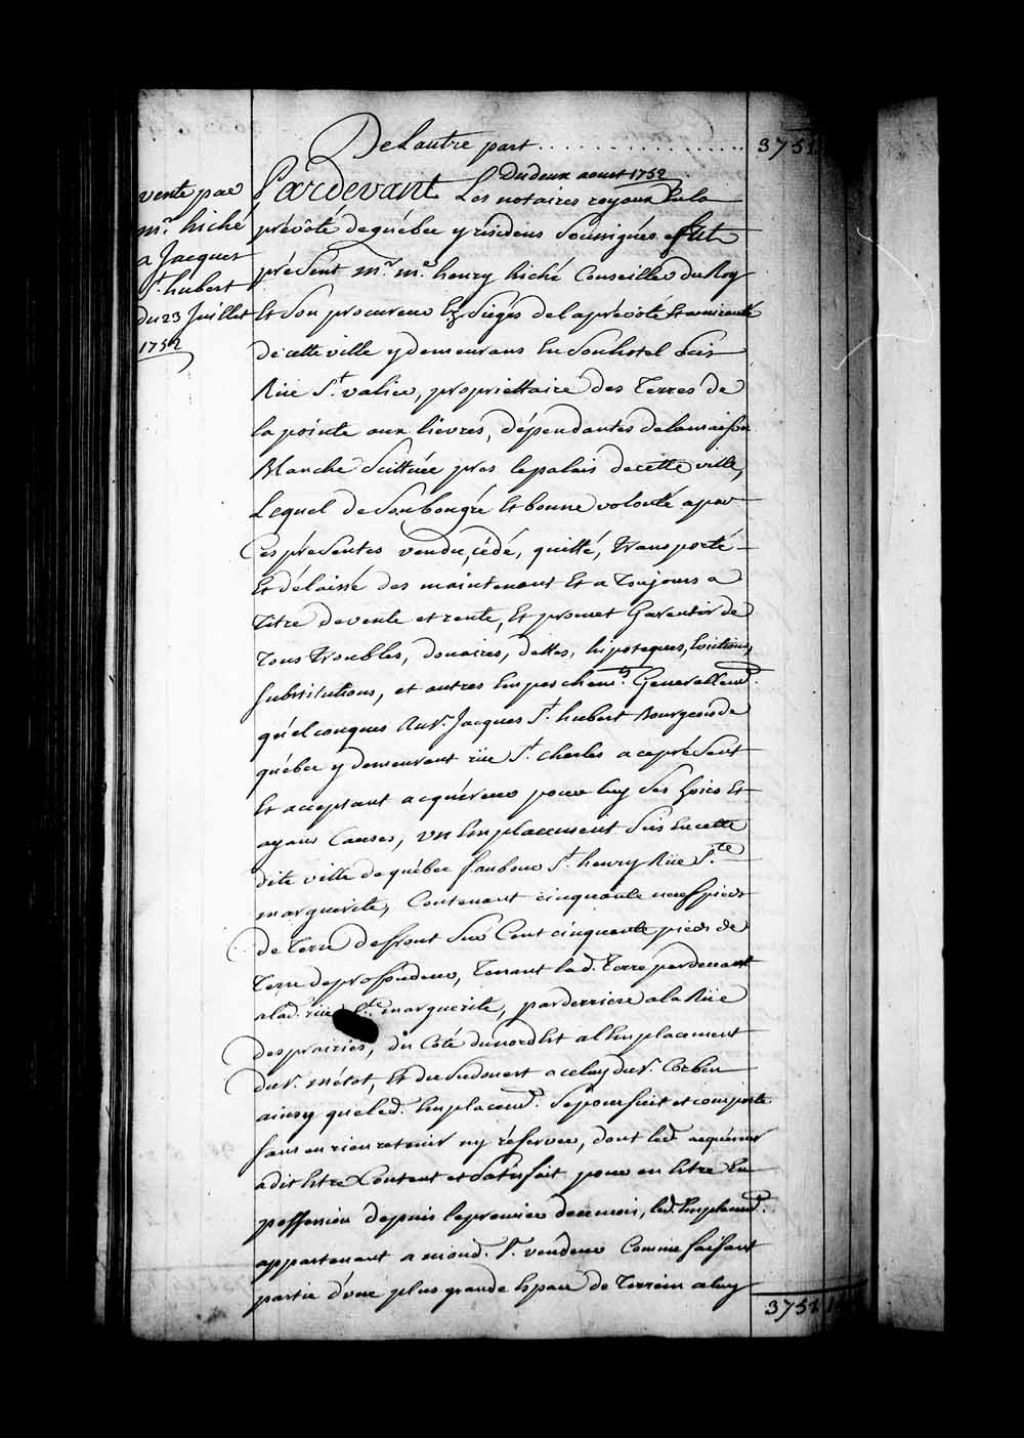 De Lautre part . . . . . . . . . . . . . . . 3751
Du deux aoust 1752
vente par
mr. hiché
a Jacques
St. hubert
du 23 Juillet
1752
Pardevant Les notaires royaux En la
prévôté de québec y residens Soussignés fut
présent mr. me. henry hiché Conseiller du Roy
Et Son procureur Es Siéges de la prévôté Et amirauté
de cette ville y demeurans En Son hotel Scis
Rüe St. valier, propriettaire des Terres de
la pointe aux liévres, dépendantes de la maison
Blanche Scittuée prés le palais de cette ville,
Lequel de Son bon gré Et bonne volonté a par
Ces présentes vendu, cédé, quitté, Transporté
Et délaissé des maintenant Et a Toujours a
Titre de vente et rente, Et promet Garentir de
Tous Troubles, douaires, dettes, hipoteques, Evictions,
Substitutions, et autres Empeschemts. Generallemt.
quélconques Au Sr. Jacques St. hubert Bourgeois de
québec y demeurant rüe St. Charles a ce présent
Et acceptant acquéreur pour luy Ses hoirs Et
ayans Causes, un Emplacement Scis En cette
dite ville de québec faubour St. henry Rüe Ste.
marguerite, Contenant cinquante neuf pieds
de Terre de front Sur Cent cinquante pieds de
Terre de profondeur, Tenant lad. Terre pardevant
a lad. rüe Ste. marguerite, par derriere a la Rüe
des prairies, du Coté du nord Est a l Emplacement
du Sr. métot, Et du Sudouest a celuy du Sr. Corbin
ainsy que led. Emplacemt. Se poursuit et comporte
Sans en rien retenir ny réserver, dont led. acquéreur
a dit Estre Content et Satisfait pour en Estre En
possession depuis le premier de ce mois, led. Emplacemt.
appartenant a mond. Sr. vendeur Comme faisant
partie d'une plus grande Espace de Terrein a luy
3751